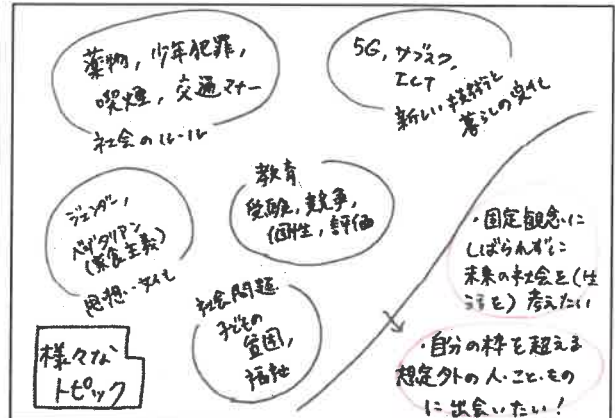 薬物, 少年犯罪,
喫煙, 交通マナー
社会のルール
5G, サブスク,
ICT
新しい技術と
暮らしの変化
ジェンダー,
ベジタリアン
(菜食主義)
思想・文化
教育
受験, 競争,
個性, 評価
社会問題
子どもの
貧困,
福祉
様々な
トピック
・固定観念に
しばられずに
未来の社会を(生
活を) 考えたい
・自分の枠を超える
想定外の人・こと・もの
に出会いたい!